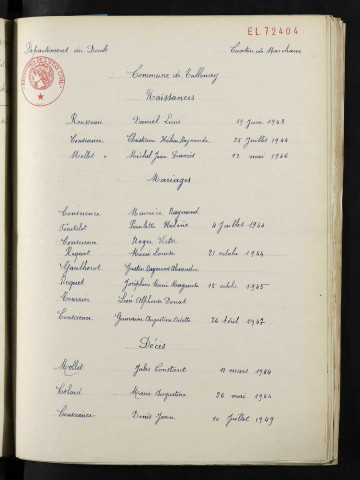 EL 72404
Département du Doubs
Canton de Marchaux
Commune de Tallenay
Naissances
Rousseau Daniel Louis 19 Juin 1943
Conscience Christiane Hélène Raymonde 25 Juillet 1944
Mollet Michel Jean François 12 mai 1946
Mariages
Conscience Maurice Raymond
Paulette Hélène 4 Juillet 1944
Conscience Roger Victor
Roguet Marie Louise 21 octobre 1944
Gautherot Gaston Raymond Alexandre
Roguet Joséphine Marie Marguerite 15 octobre 1945
Léon Alphonse Donat
Conscience Germaine Augustine Odette 26 Avril 1947
Décès
Mollet Jules Constant 11 mars 1944
Marie Augustine 26 mai 1944
Conscience Denis Jean 10 Juillet 1949